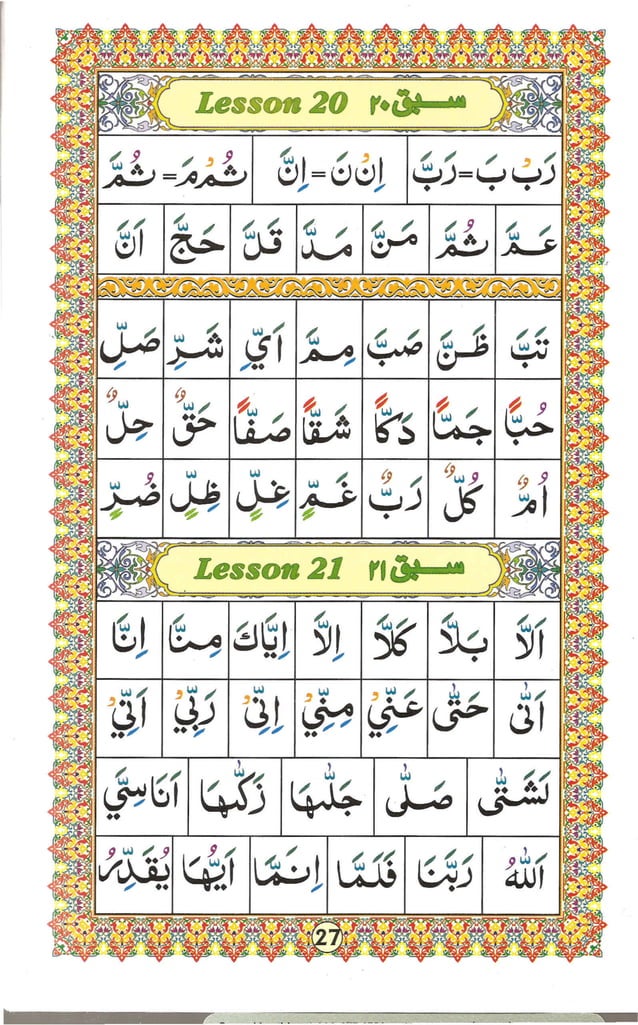 Lesson 20 سبق ۲۰
رَبْ بَ = رَبَّ اِنْ نَ = اِنَّ ثُمْ مَ = ثُمَّ
عَمَّ ثُمَّ مَنَّ مَدَّ قَلَّ حَجَّ اَنَّ
تَبَّ ظَنَّ صَبَّ مِمَّ اَيِّ شَرِّ صَلِّ
حُبًّا جَمًّا دَكًّا شَقًّا صَفًّا حَقٌّ حِلٌّ
اُمٌّ كُلٌّ رَبٌّ غَمٍّ غِلٍّ ظِلٍّ ضُرٍّ
Lesson 21 سبق ۲۱
اَلَّا بَلَّا كَلَّا اِلَّا اِيَّاكَ مِنَّا اِنَّا
اَنّٰى حَتّٰى عَنِّيْ مِنِّيْ اِنِّيْ رَبِّيْ اَتِّيْ
لَشَتّٰى صَلّٰى جَلّٰىهَا زَكّٰىهَا اَنَاسِيَّ
اَللّٰهُ رَبَّنَا فَلَمَّا اِنَّمَا اَيُّهَا يُقَدِّرُ
27